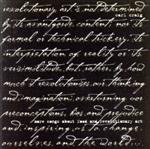 revolutionary art is not determined
carl craig
by its avantgarde content, nor its
formal or technical trickery, its
interpretation of reality or its
verisimilitude, but, rather, by how
much it revolutionizes our thinking
and imagination; overturning our
preconceptions, bias and prejudice
more songs about food and revolutionary art
and inspiring us to change
ourselves and the world.